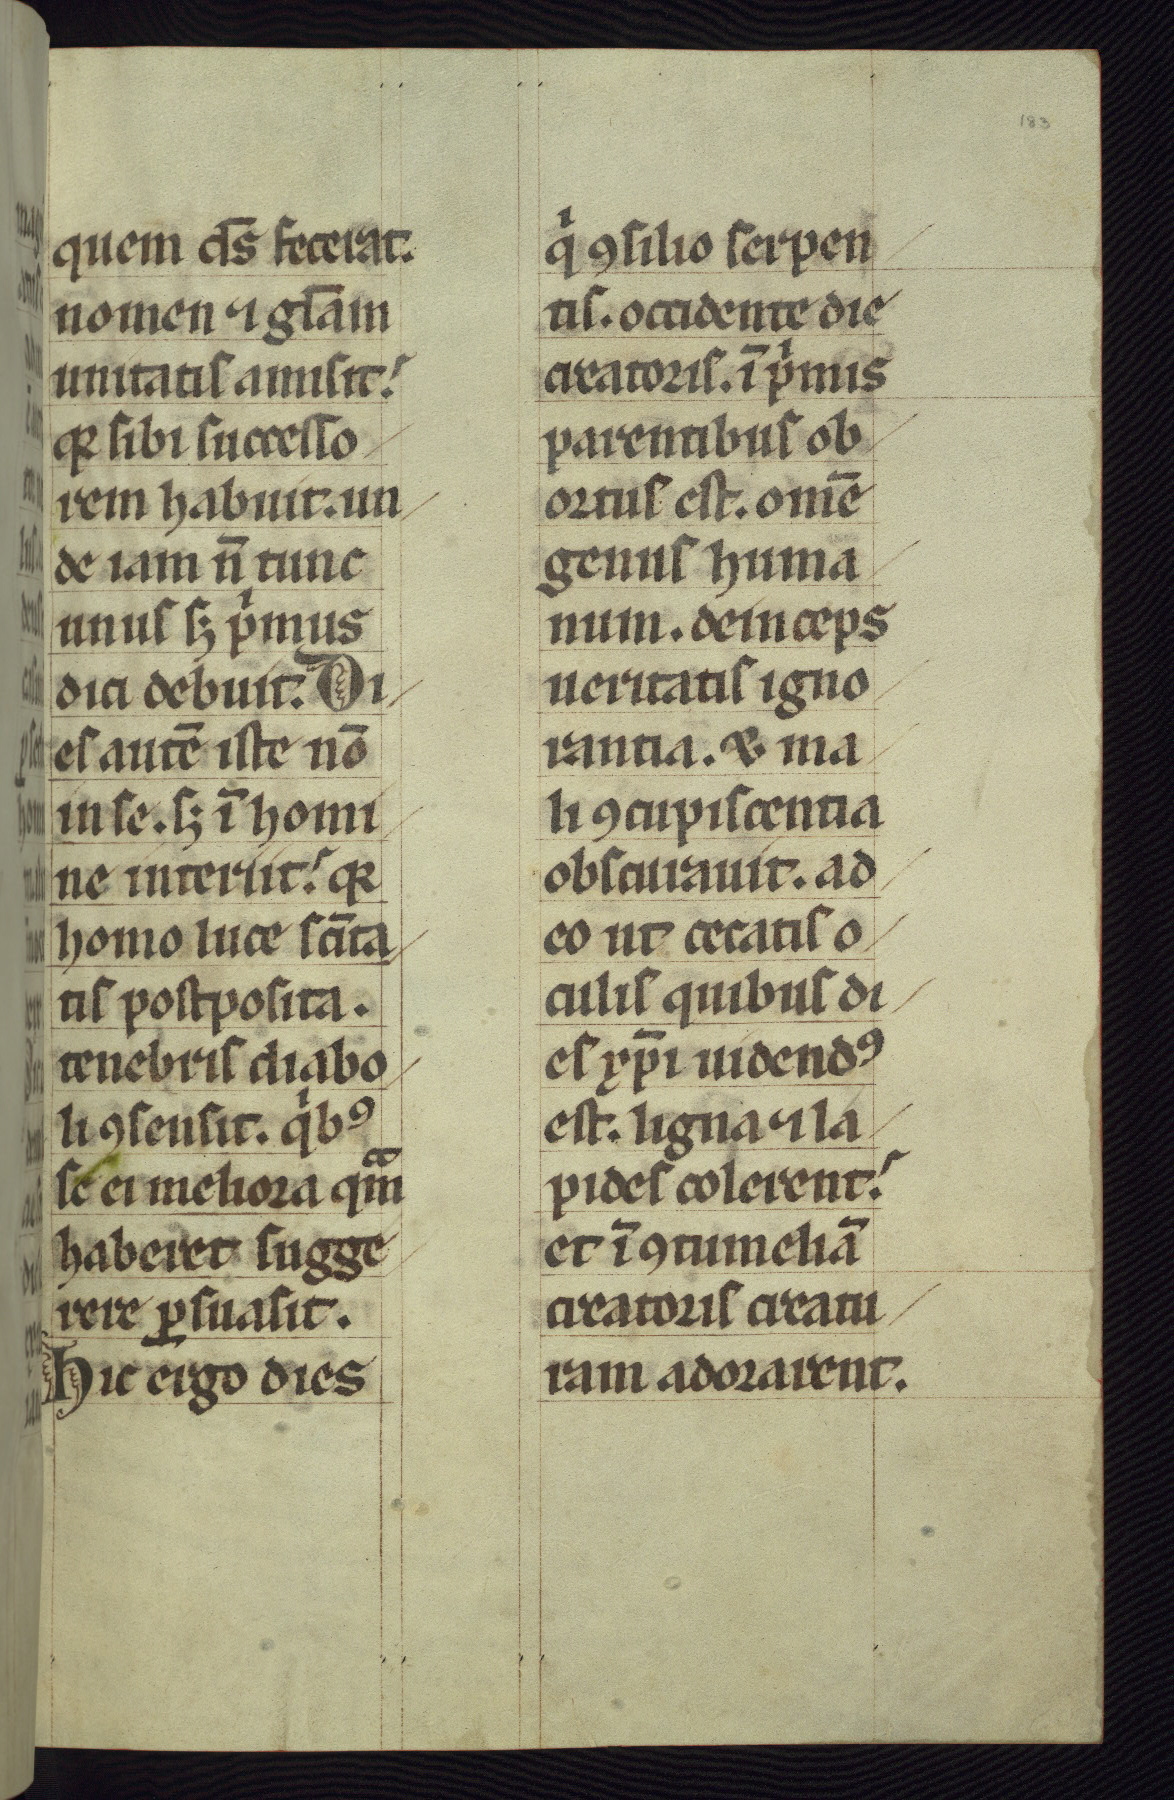 183
quem d̅s fecerat.
nomen ⁊ gl̅am
unitatis amisit.
qꝛ sibi successo
rem habuit. un
de iam n̅ tunc
unus sꝫ pͥmus
dici debuit. Di
es aute̅ iste no̅
in se. sꝫ i̅ homi
ne interiit. qꝛ
homo luce sc̅ita
tis postposita.
tenebris diabo
li ꝯsensit. qͥbꝰ
se ei meliora qᷓm
haberet sugge
rere ꝑsuasit.
Hic ergo dies
qͥ ꝯsilio serpen
tis. occidente die
creatoris. i̅ pͥmis
parentibus ob
ortus est. ome̅
genus huma
num. deinceps
ueritatis igno
rantia. & ma
li ꝯcupiscentia
obscurauit. ad
eo ut cecatis o
culis quibus di
es xp̅i uidendꝰ
est. ligna ⁊ la
pides colerent.
et i̅ ꝯtumelia̅
creatoris creatu
ram adorarent.